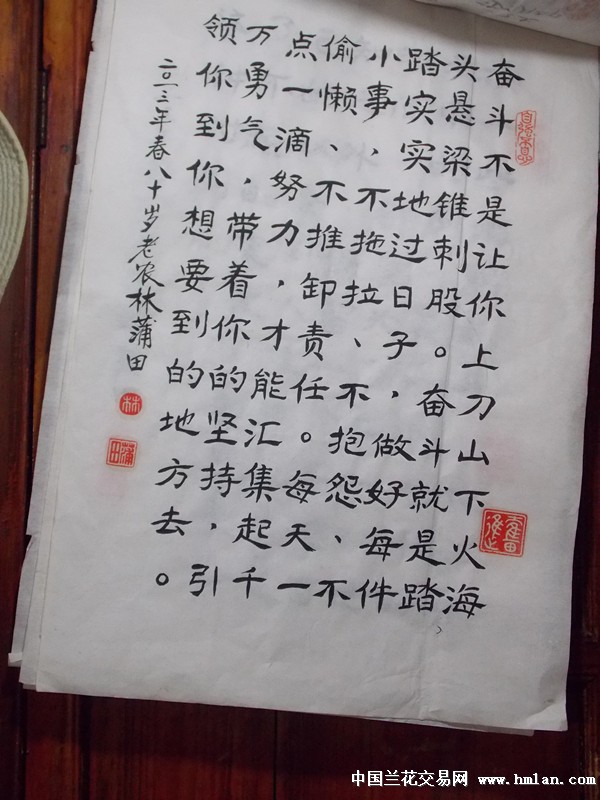 奋斗不是让你上刀山下火海、
头悬梁锥刺股。奋斗就是踏
踏实实地过日子，做好每件
小事，不拖拉、不抱怨、不
偷懒、不推卸责任。每天一
点一滴努力，才能汇集起千
万勇气，带着你的坚持，引
领你到你想要到的地方去。
二〇一三年春八十岁老农林蒲田
林
蒲田
中国兰花交易网 www.hmlan.com